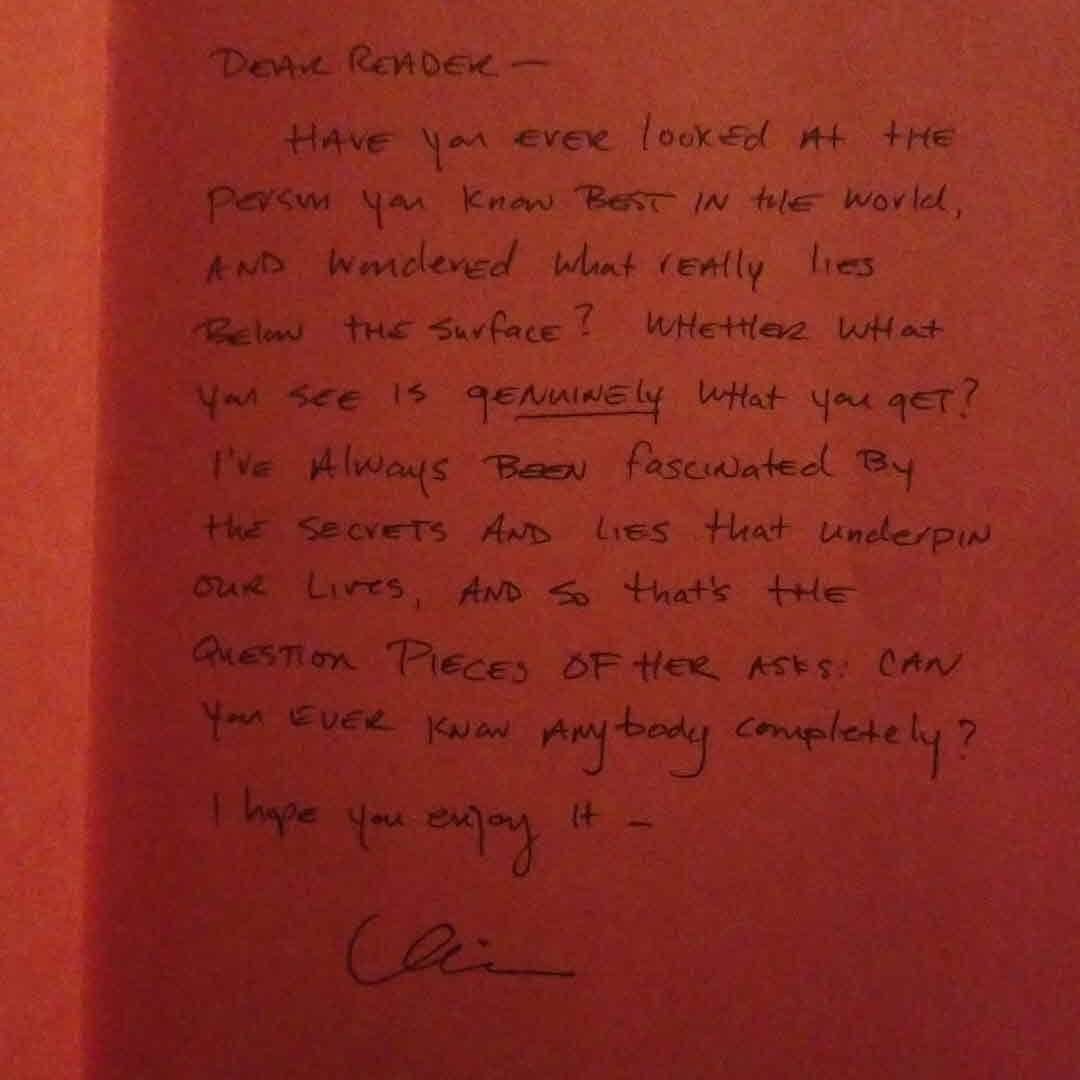 DEAR READER —
HAVE you EVER looked At tHE
person you know BEST IN tHE world,
AND wondered what rEAlly lies
Below tHE surface? WHEtHER WHat
you SEE IS gENUINELy WHat you gET?
I'VE Always BEEN fascinated By
tHE SECRETS AND LIES that underpin
OUR LIVES, AND so that's tHE
QUESTION PIECES OF HER ASKS: CAN
You EVER know ANybody completely?
I hope you enjoy It —